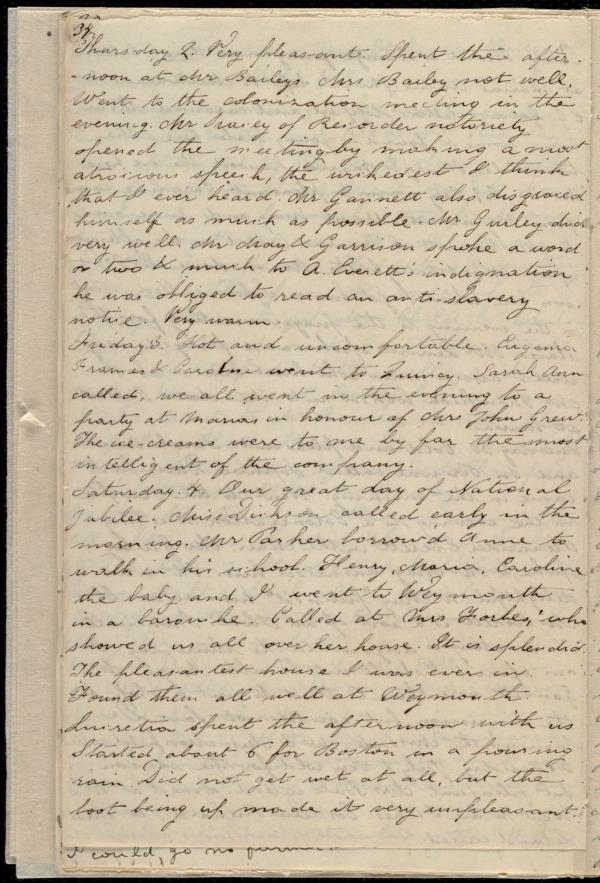 34
Thursday 2. Very pleasant. Spent the after-
-noon at Mr Baileys. Mrs Bailey not well.
Went to the colonization meeting in the
evening. Mr of Recorder notoriety
opened the meeting by making a most
atrocious speech, the wickedest I think
that I ever heard. Mr Gannett also disgraced
himself as much as possible. Mr Gurley did
very well. Mr May & Garrison spoke a word
or two & much to A. Everett's indignation
he was obliged to read an anti-slavery
notice. Very warm.
Friday 3. Hot and uncomfortable. Eugenia
Frances & Caroline went to Quincy. Sarah Ann
called, we all went in the evening to a
party at Marias in honour of Mrs John Grew.
The ice-creams were to me by far the most
intelligent of the company.
Saturday. 4. Our great day of National
Jubilee. Miss Dickson called early in the
morning. Mr Parker borrow'd Anne to
walk in his school. Henry, Maria, Caroline
the baby and I went to Weymouth
in a barouche. Called at Mrs Forbes,' who
showed us all over her house. It is splendid.
The pleasantest house I was ever in.
Found them all well at Weymouth.
Lucretia spent the afternoon with us
Started about 6 for Boston in a pouring
rain. Did not get wet at all, but the
boot being up made it very unpleasant.
I could go no